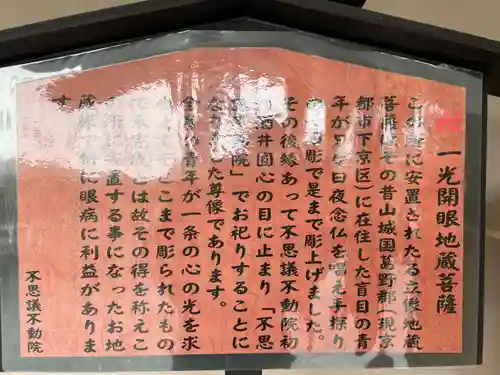 一光開眼地蔵菩薩
この に安置されたる立像地蔵
菩薩 その昔山城国葛野郡(現京
都市下京区)に在住した盲目の青
年が日々日夜念仏を唱え手探り
の 彫で是まで彫上げました。
その後縁あって不思議不動院初
酒井圓心の目に止まり「不思
動院」でお祀りすることに
なりました尊像であります。
の青年が一条の心の光を求
そこまで彫られたもの
で未完成とは故その得を称えこ
の所に安置する事になったお地
蔵様で特に眼病に利益がありま
す
不思議不動院